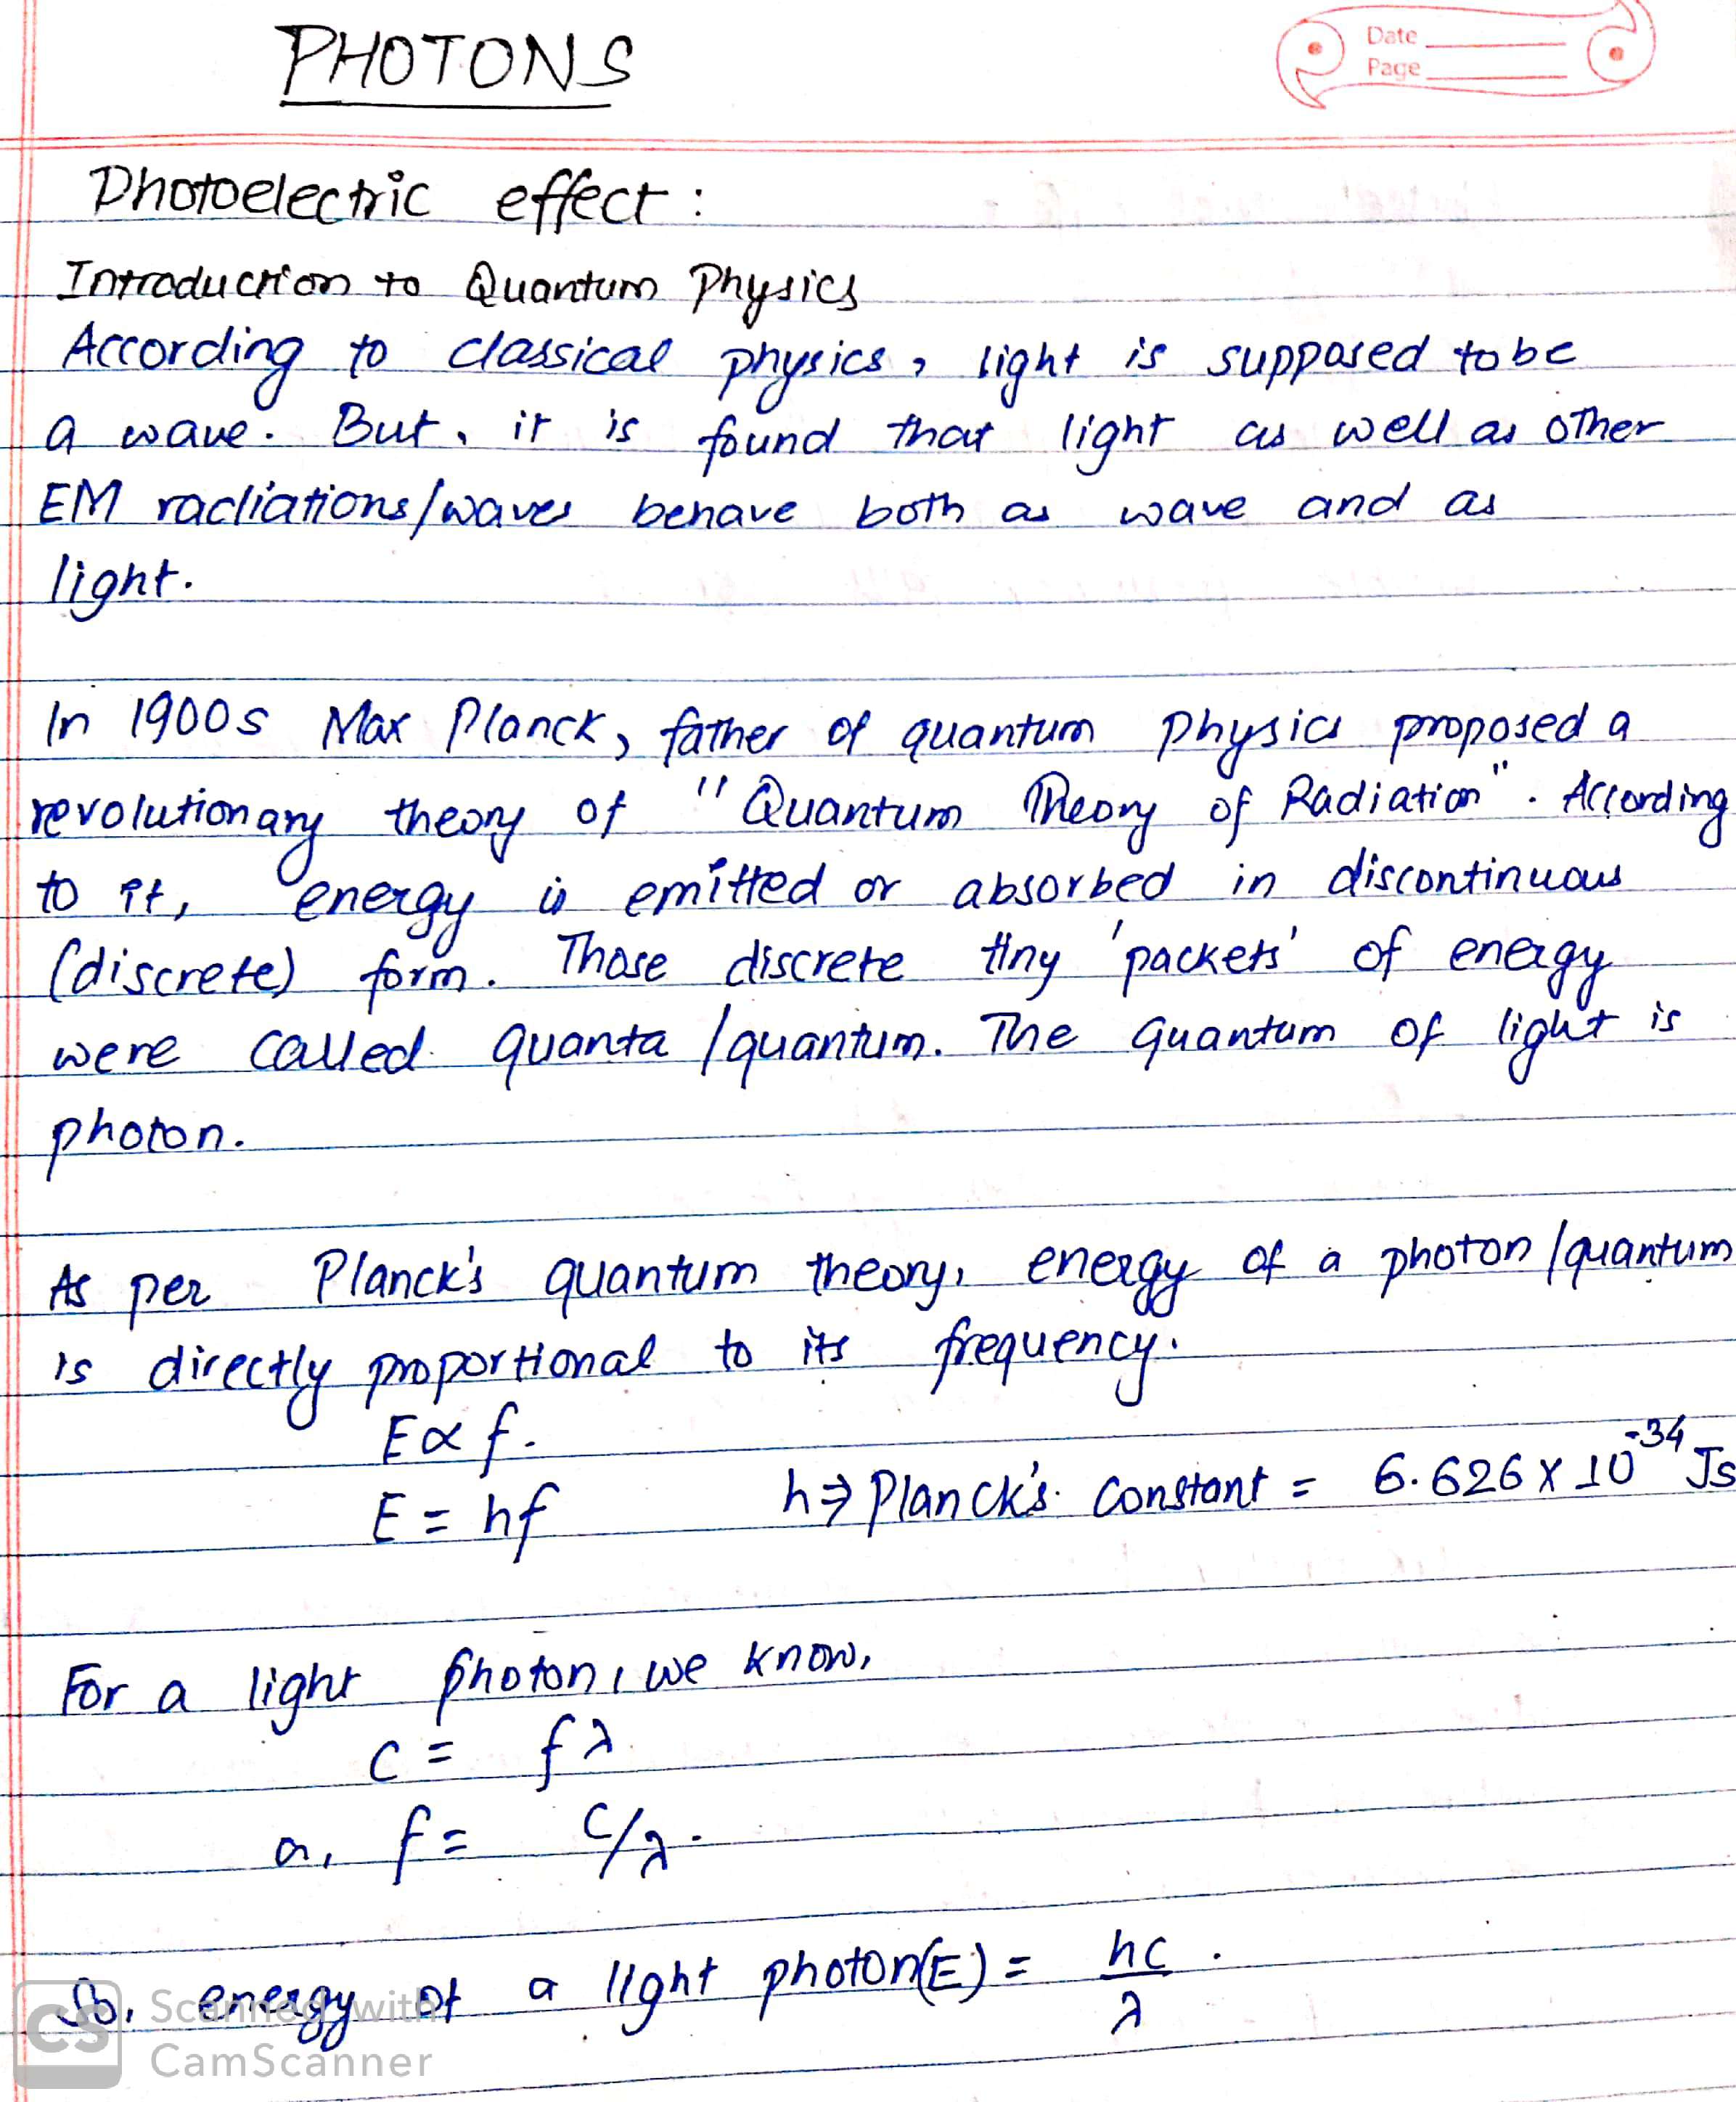 PHOTONS
Date
Page
Photoelectric effect :
Introduction to Quantum Physics
According to classical physics, light is supposed to be
a wave. But, it is found that light as well as other
EM radiations/waves behave both as wave and as
light.
In 1900s Max Planck, father of quantum physics proposed a
revolutionary theory of "Quantum Theory of Radiation". According
to it, energy is emitted or absorbed in discontinuous
(discrete) form. Those discrete tiny 'packets' of energy
were called quanta/quantum. The quantum of light is
photon.
As per Planck's quantum theory, energy of a photon/quantum
is directly proportional to its frequency.
E∝f.
E = hf h⇒Planck's constant = 6.626 X 10^-34 Js
For a light photon, we know,
c = fλ
or, f = c/λ.
So, energy of a light photon(E) = hc/λ.
CS Scanned with
CamScanner